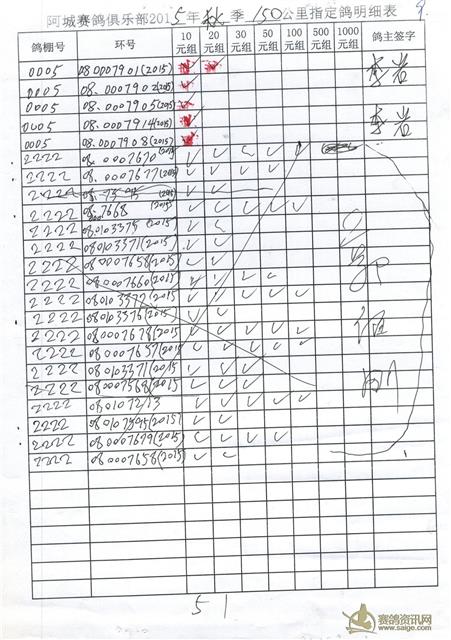 阿城赛鸽俱乐部2015年秋季150公里指定鸽明细表
9.
鸽棚号 环号 10元组 20元组 30元组 50元组 100元组 500元组 1000元组 鸽主签字
0005 08.0007901(2015) 李岩
0005 08.0007902(2015)
0005 08.0007905(2015)
0005 08.0007914(2015) 李岩
0005 08.0007908(2015)
2222 08.0007670(2015
2222 08.0007677(2015)
2222
2222 08.7668 (2015
2222 08.0103375 (2015)
2222 080103371(2015)
2222 080007658(2015)
2222 080007660(2015)
2222 080103372(2015
2222 080103376(2015)
2222 080007678(2015)
2222 080007657(2015
2222 080103371(2015)
2222 080007568(2015)
2222
2222
2222 080007679(2015)
2222 080007658(2015)
51
赛鸽资讯网
www.saige.com